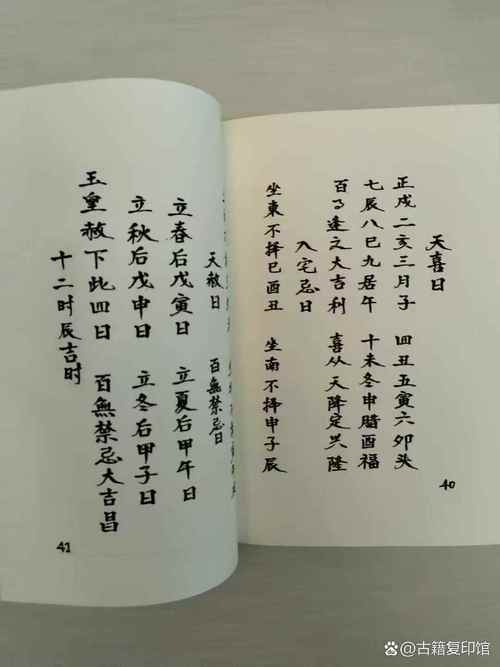 天喜日
正戌二亥三月子 四丑五寅六卯头
七辰八巳九居午 十未冬申腊酉福
百事逢之大吉利 喜从天降定兴隆
入宅忌日
坐東不择巳酉丑 坐南不择申子辰
40
天赦日 百無禁忌日
立春后戊寅日 立夏后甲午日
立秋后戊申日 立冬后甲子日
玉皇赦下此四日 百無禁忌大吉昌
十二时辰吉时
41
@古籍复印馆